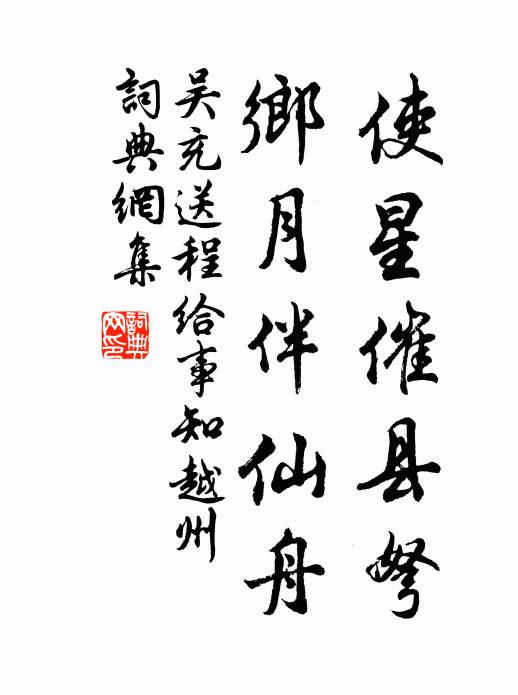 使星催县弩
鄉月伴仙舟
吴充送程给事知越州
詞典網集
詞典網印